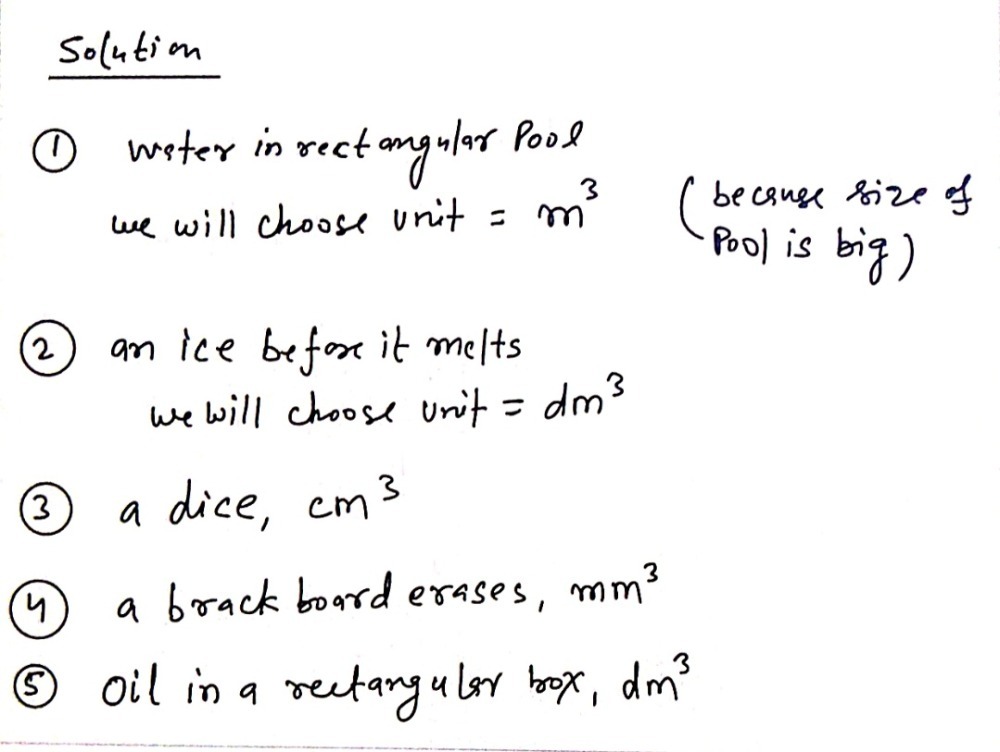 Solution
① water in rectangular Pool
we will choose unit = m³ (because size of
Pool is big)
② an ice before it melts
we will choose unit = dm³
③ a dice, cm³
④ a brack board erases, mm³
⑤ oil in a rectangular box, dm³